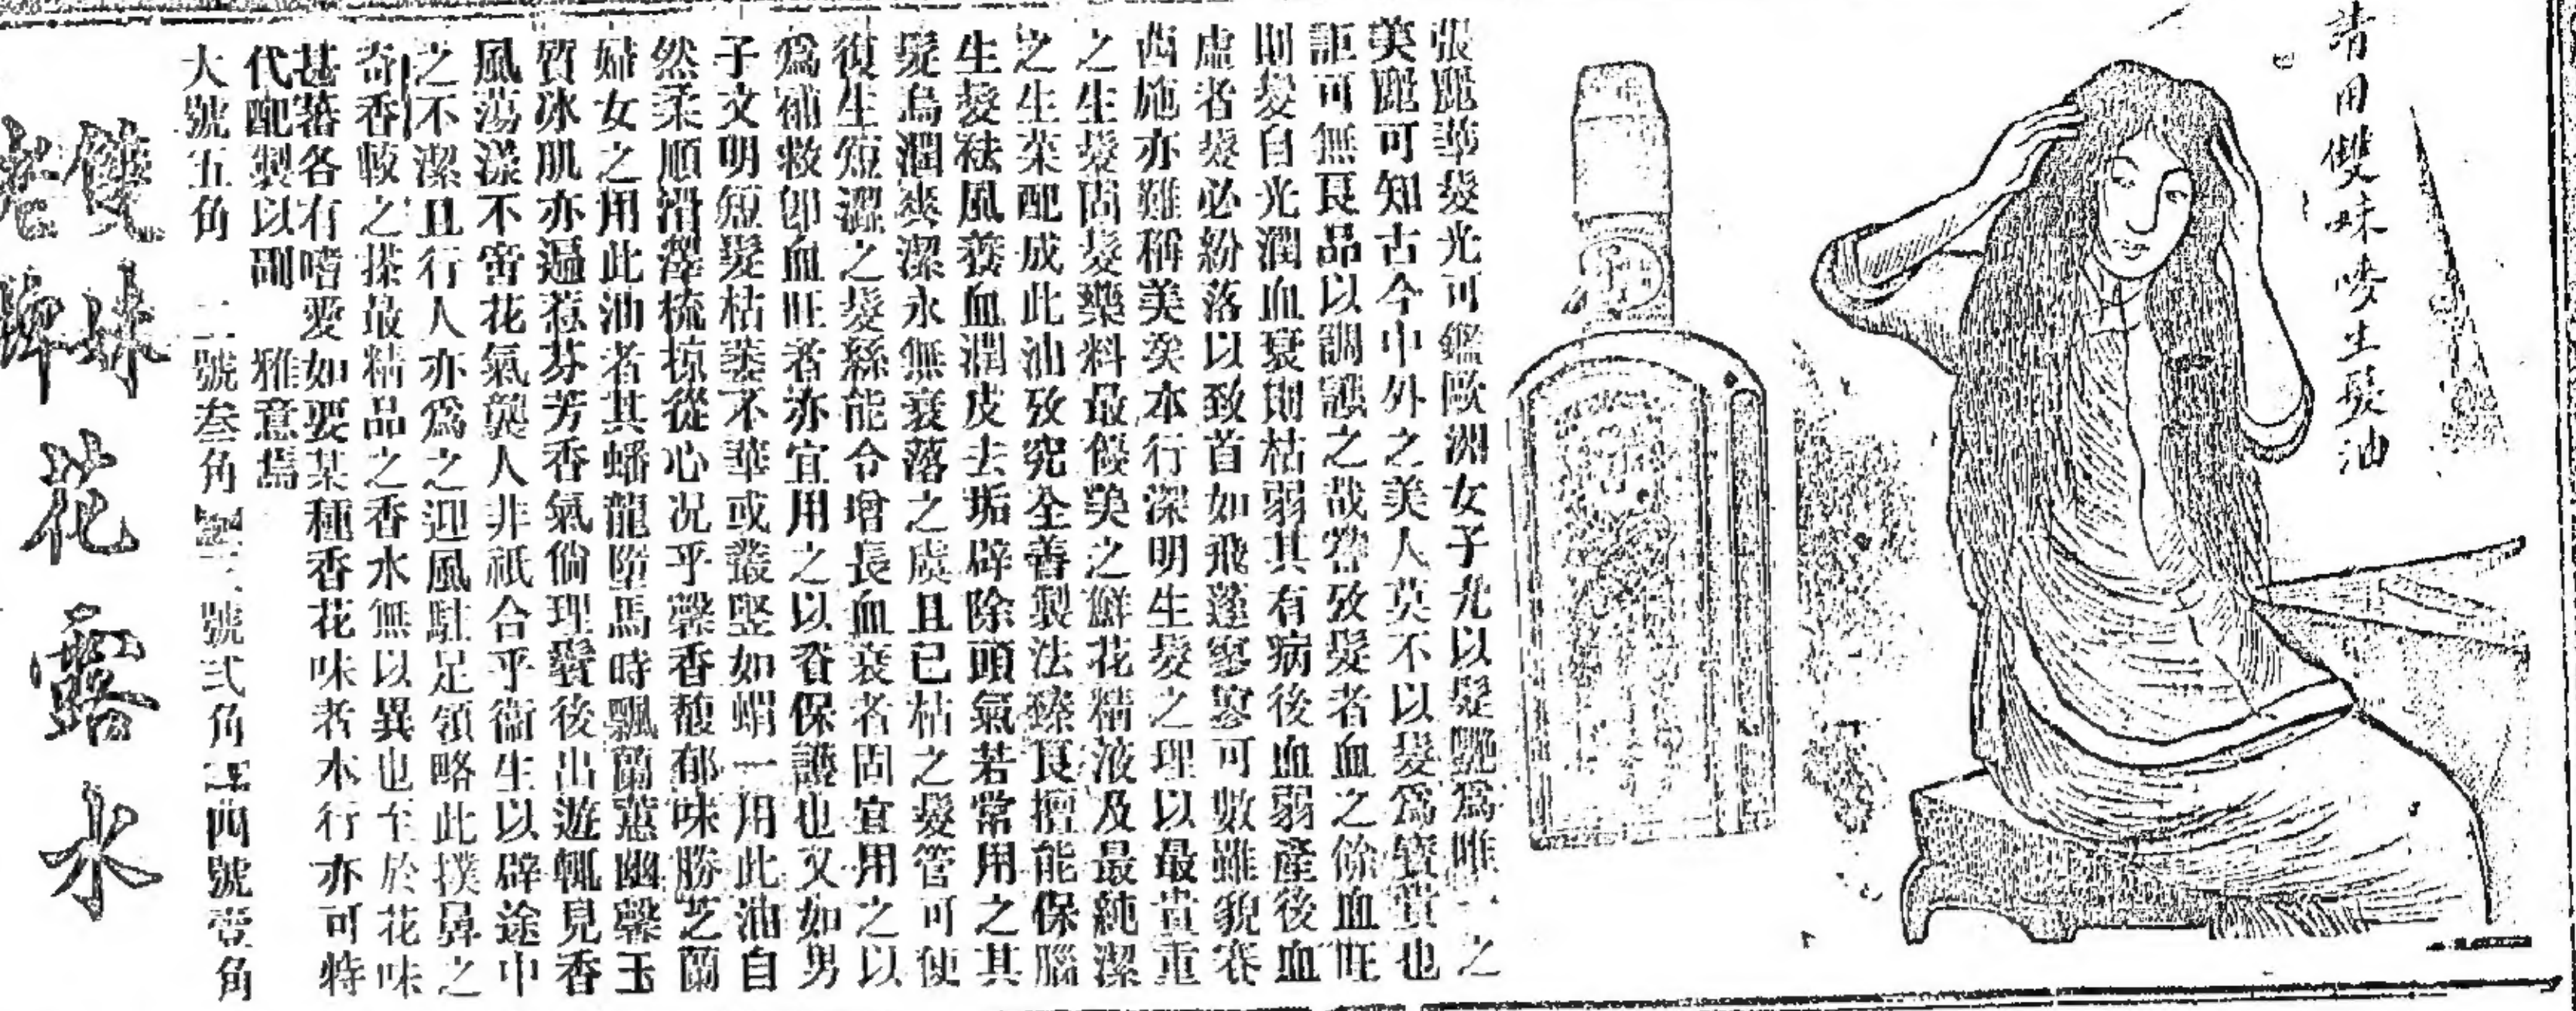 請用雙妹嘜生髮油
張麗華髮光可鑑歐洲女子尤以髮艷為唯一之
美麗可知古今中外之美人莫不以髮為寶貴也
詎可無良品以調護之哉嘗攷髮者血之餘血旺
則髮自光潤血衰則枯弱其有病後血弱產後血
虛者髮必紛落以致首如飛蓬寥寥可數雖貌賽
西施亦難稱美矣本行深明生髮之理以最貴重
之生髮固髮藥料最優美之鮮花精液及最純潔
之生菜配成此油攷究全善製法臻良擅能保腦
生髮祛風養血潤皮去垢辟除頭氣若常用之其
髮烏潤爽潔永無衰落之虞且已枯之髮管可使
復生短澀之髮絲能令增長血衰者固宜用之以
為補救卽血旺者亦宜用之以資保護也又如男
子文明短髮枯萎不華或叢豎如蝟一用此油自
然柔順滑澤梳掠從心况乎馨香馥郁味勝芝蘭
婦女之用此油者其蟠龍墮馬時飄蘭蕙幽馨玉
質冰肌亦遍惹芬芳香氣倘理鬢後出遊輒見香
風蕩漾不啻花氣襲人非祇合乎衞生以辟途中
之不潔且行人亦為之迎風駐足領略此撲鼻之
奇香較之搽最精品之香水無以異也至於花味
甚蕃各有嗜愛如要某種香花味者本行亦可特
代配製以副 雅意焉
大號五角 二號叁角 三號弍角 四號壹角
雙妹
老牌
花露水